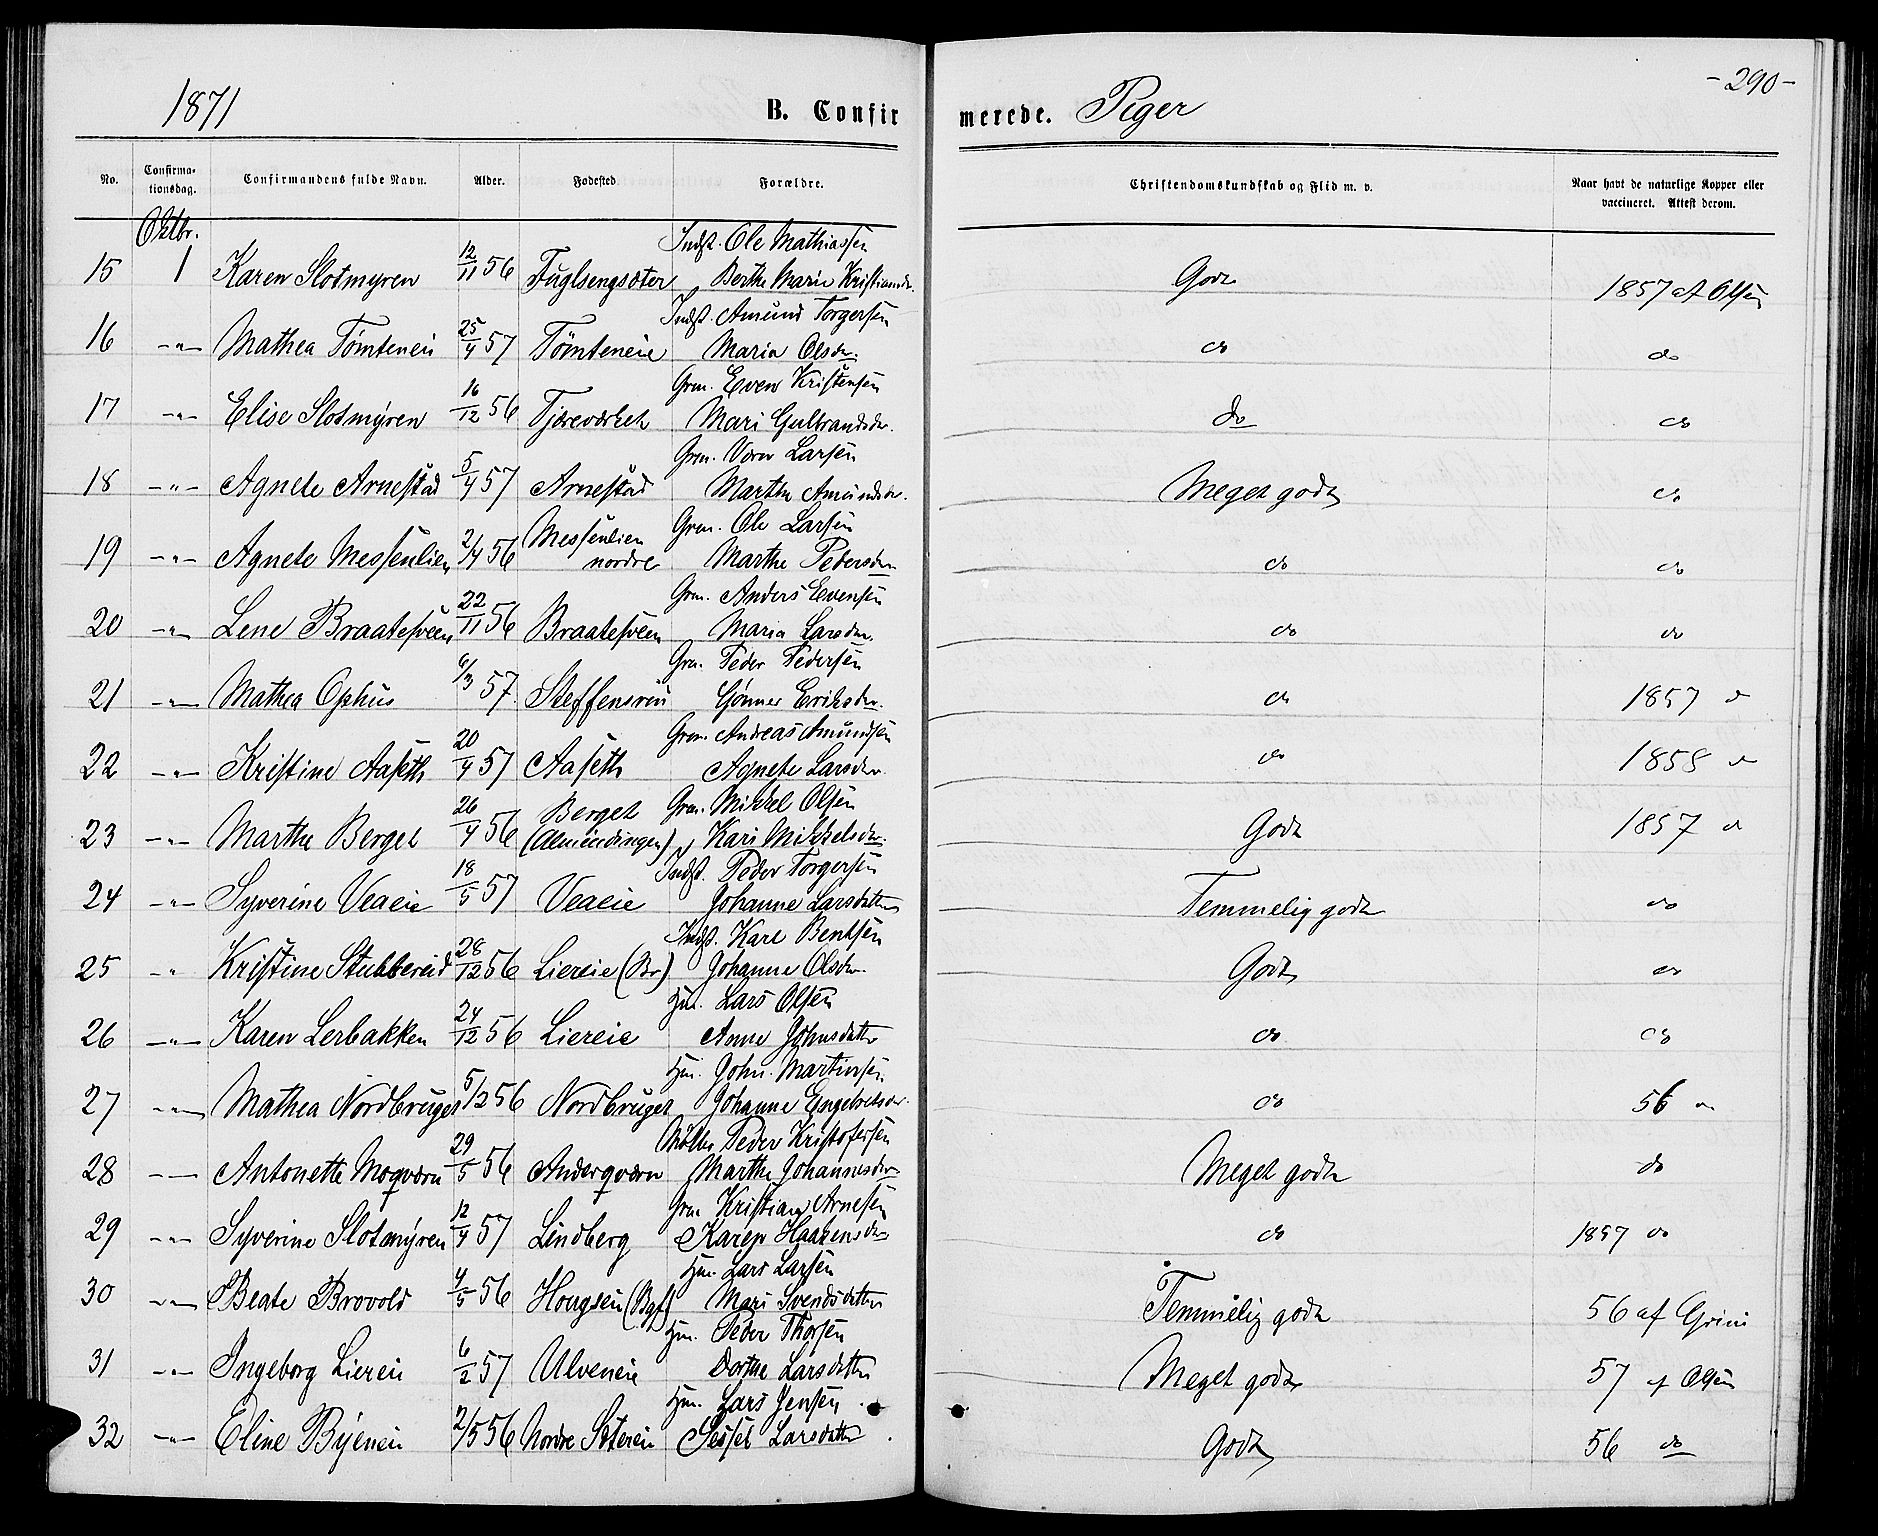 1871 B. Confirmerede. Piger -290-
No. Confirmationsdag. Confirmandens fulde Navn. Alder. Fødested. Forældre. Christendomskundskab og Flid m. v. Naar havt de naturlige Kopper eller vaccineret. Attest derom.
Oktbr.
Indst. Ole Mathiassen
15 1 Karen Slotmyren 12/11 56 Fuglsengsæter Berthe Marie Kristiansdr. Godt 1857 af Olsen
Indst. Amund Torgersen
16 -"- Mathea Tömteneie 25/4 57 Tömteneie Maria Olsdr. do do
Grm. Even Kristensen
17 -"- Elise Slotmyren 16/12 56 Tjæreværket Mari Gulbrandsdr. do do
Grm. Larsen
18 -"- Agnete Arnestad 5/4 57 Arnestad Marthe Amundsdr. Meget godt do
Grm. Ole Larsen
19 -"- Agnete Messenlien 2/4 56 Messenlien nordre Marthe Pedersdr. do do
Grm. Anders Evensen
20 -"- Lene Braatesveen 22/11 56 Braatesveen Maria Larsdr. do do
Grm. Peder Pedersen
21 -"- Mathea Ophus 6/3 57. Steffensrud Gönner Eriksdr. do 1857 do
Grm. Andreas Amundsen
22 -"- Kristine Aaseth 20/4 57 Aaseth Agnete Larsdr. do 1858 do
Grm. Mikkel Olsen
23 -"- Marthe Berget 26/4 56 Berget (Almindingen) Kari Mikkelsdr. Godt 1857 do
Indst. Peder Torgersen
24 -"- Syverine Veaeie 18/5 57 Veaeie Johanne Larsdatter Temmelig godt do
Indst. Kare Bentsen
25 -"- Kristine Stubbereid 28/12 56 Liereie (Br) Johanne Olsdr. Godt do
Hm. Lars Olsen
26 -"- Karen Lerbakken 24/12 56 Liereie Anne Johnsdatter do do
Hm. John Martinsen
27 -"- Mathea Nordbruget 5/12 56 Nordbruget Johanne Engebretsdr. do 56 do
Möller Peder Kristofersen
28 -"- Antonette Moqværn 29/5 56 Anderqværn Marthe Johannesdr. Meget godt do
Grm Kristian Arnesen
29 -"- Syverine Slotmyren 12/4 57 Lindberg Karen Haakensdr. do 1857 do
Hm. Lars Larsen
30 -"- Beate Brovold 4/5 56 Hougseie Mari Svendsdatter Temmelig godt 56 af Grini
Hm. Peder Thorsen
31 -"- Ingeborg Liereie 6/2 57 Ulveneie Dorthe Larsdatter Meget godt 57 af Olsen
Hm. Lars Jensen
32 -"- Eline Byeneie 2/5 56 Nordre Sætereie Sissel Larsdatter Godt 56 do